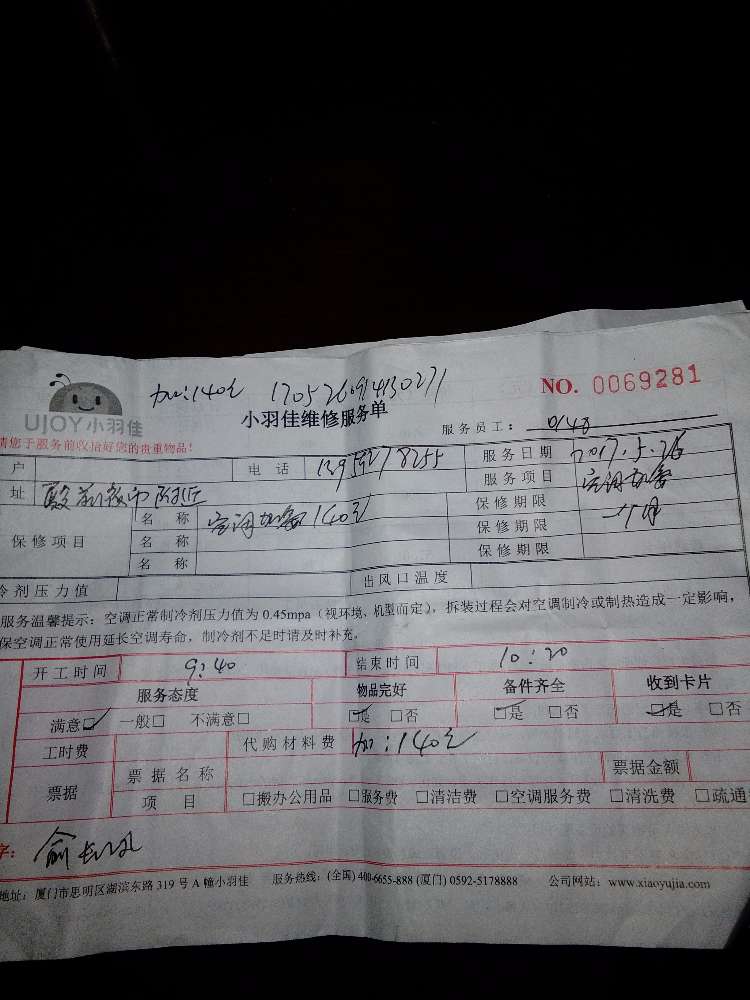 加:140元 170526094130271
NO. 0069281
UJOY小羽佳
小羽佳维修服务单
服务员工: 0148
请您于服务前收拾好您的贵重物品!
户 电 话 服务日期 2017.5.26
址 附近 服务项目 空调加氟
保修项目 名 称 空调加氟140元 保修期限 一个月
名 称 保修期限
名 称 保修期限
冷剂压力值 出风口温度
服务温馨提示: 空调正常制冷剂压力值为 0.45mpa (视环境, 机型而定), 拆装过程会对空调制冷或制热造成一定影响,
保空调正常使用延长空调寿命, 制冷剂不足时请及时补充.
开工时间 9:40 结束时间 10:20
服务态度 物品完好 备件齐全 收到卡片
满意☑ 一般□ 不满意□ ☑是 □否 ☑是 □否 ☑是 □否
工时费 代购材料费 加:140元
票据 票据名称 票据金额
项 目 □搬办公用品 □服务费 □清洁费 □空调服务费 □清洗费 □疏通
字:
地址: 厦门市思明区湖滨东路 319 号 A 幢小羽佳 服务热线: (全国) 400-6655-888 (厦门) 0592-5178888 公司网站: www.xiaoyujia.com